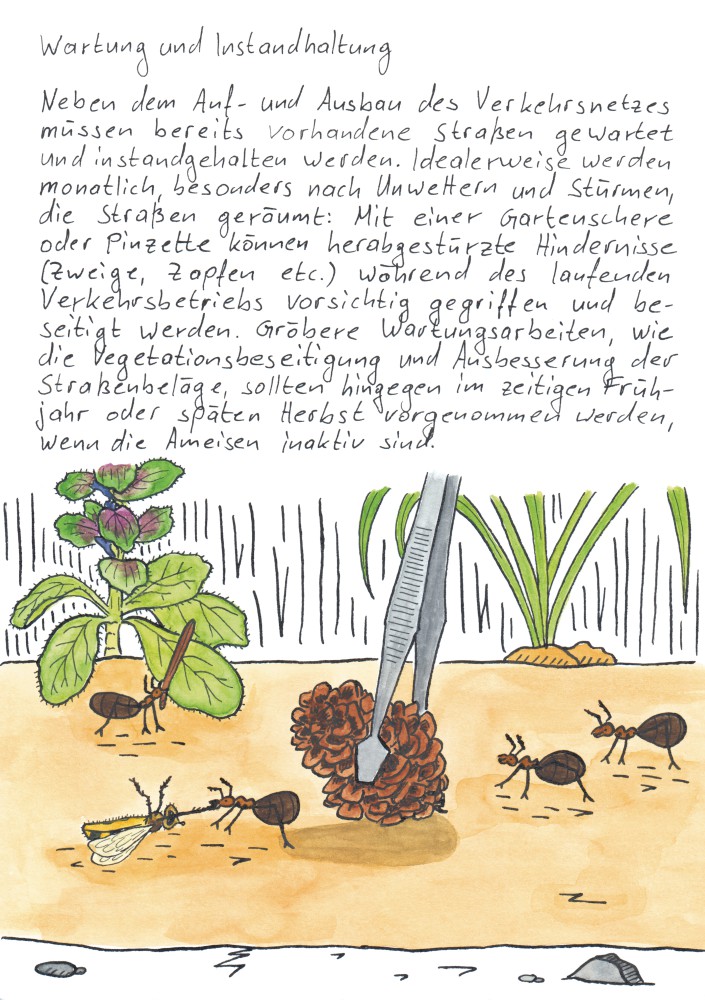 Wartung und Instandhaltung
Neben dem Auf- und Ausbau des Verkehrsnetzes
müssen bereits vorhandene Straßen gewartet
und instandgehalten werden. Idealerweise werden
monatlich, besonders nach Unwettern und Stürmen,
die Straßen geräumt: Mit einer Gartenschere
oder Pinzette können herabgestürzte Hindernisse
(Zweige, Zapfen etc.) während des laufenden
Verkehrsbetriebs vorsichtig gegriffen und be-
seitigt werden. Gröbere Wartungsarbeiten, wie
die Vegetationsbeseitigung und Ausbesserung der
Straßenbeläge, sollten hingegen im zeitigen Früh-
jahr oder späten Herbst vorgenommen werden,
wenn die Ameisen inaktiv sind.